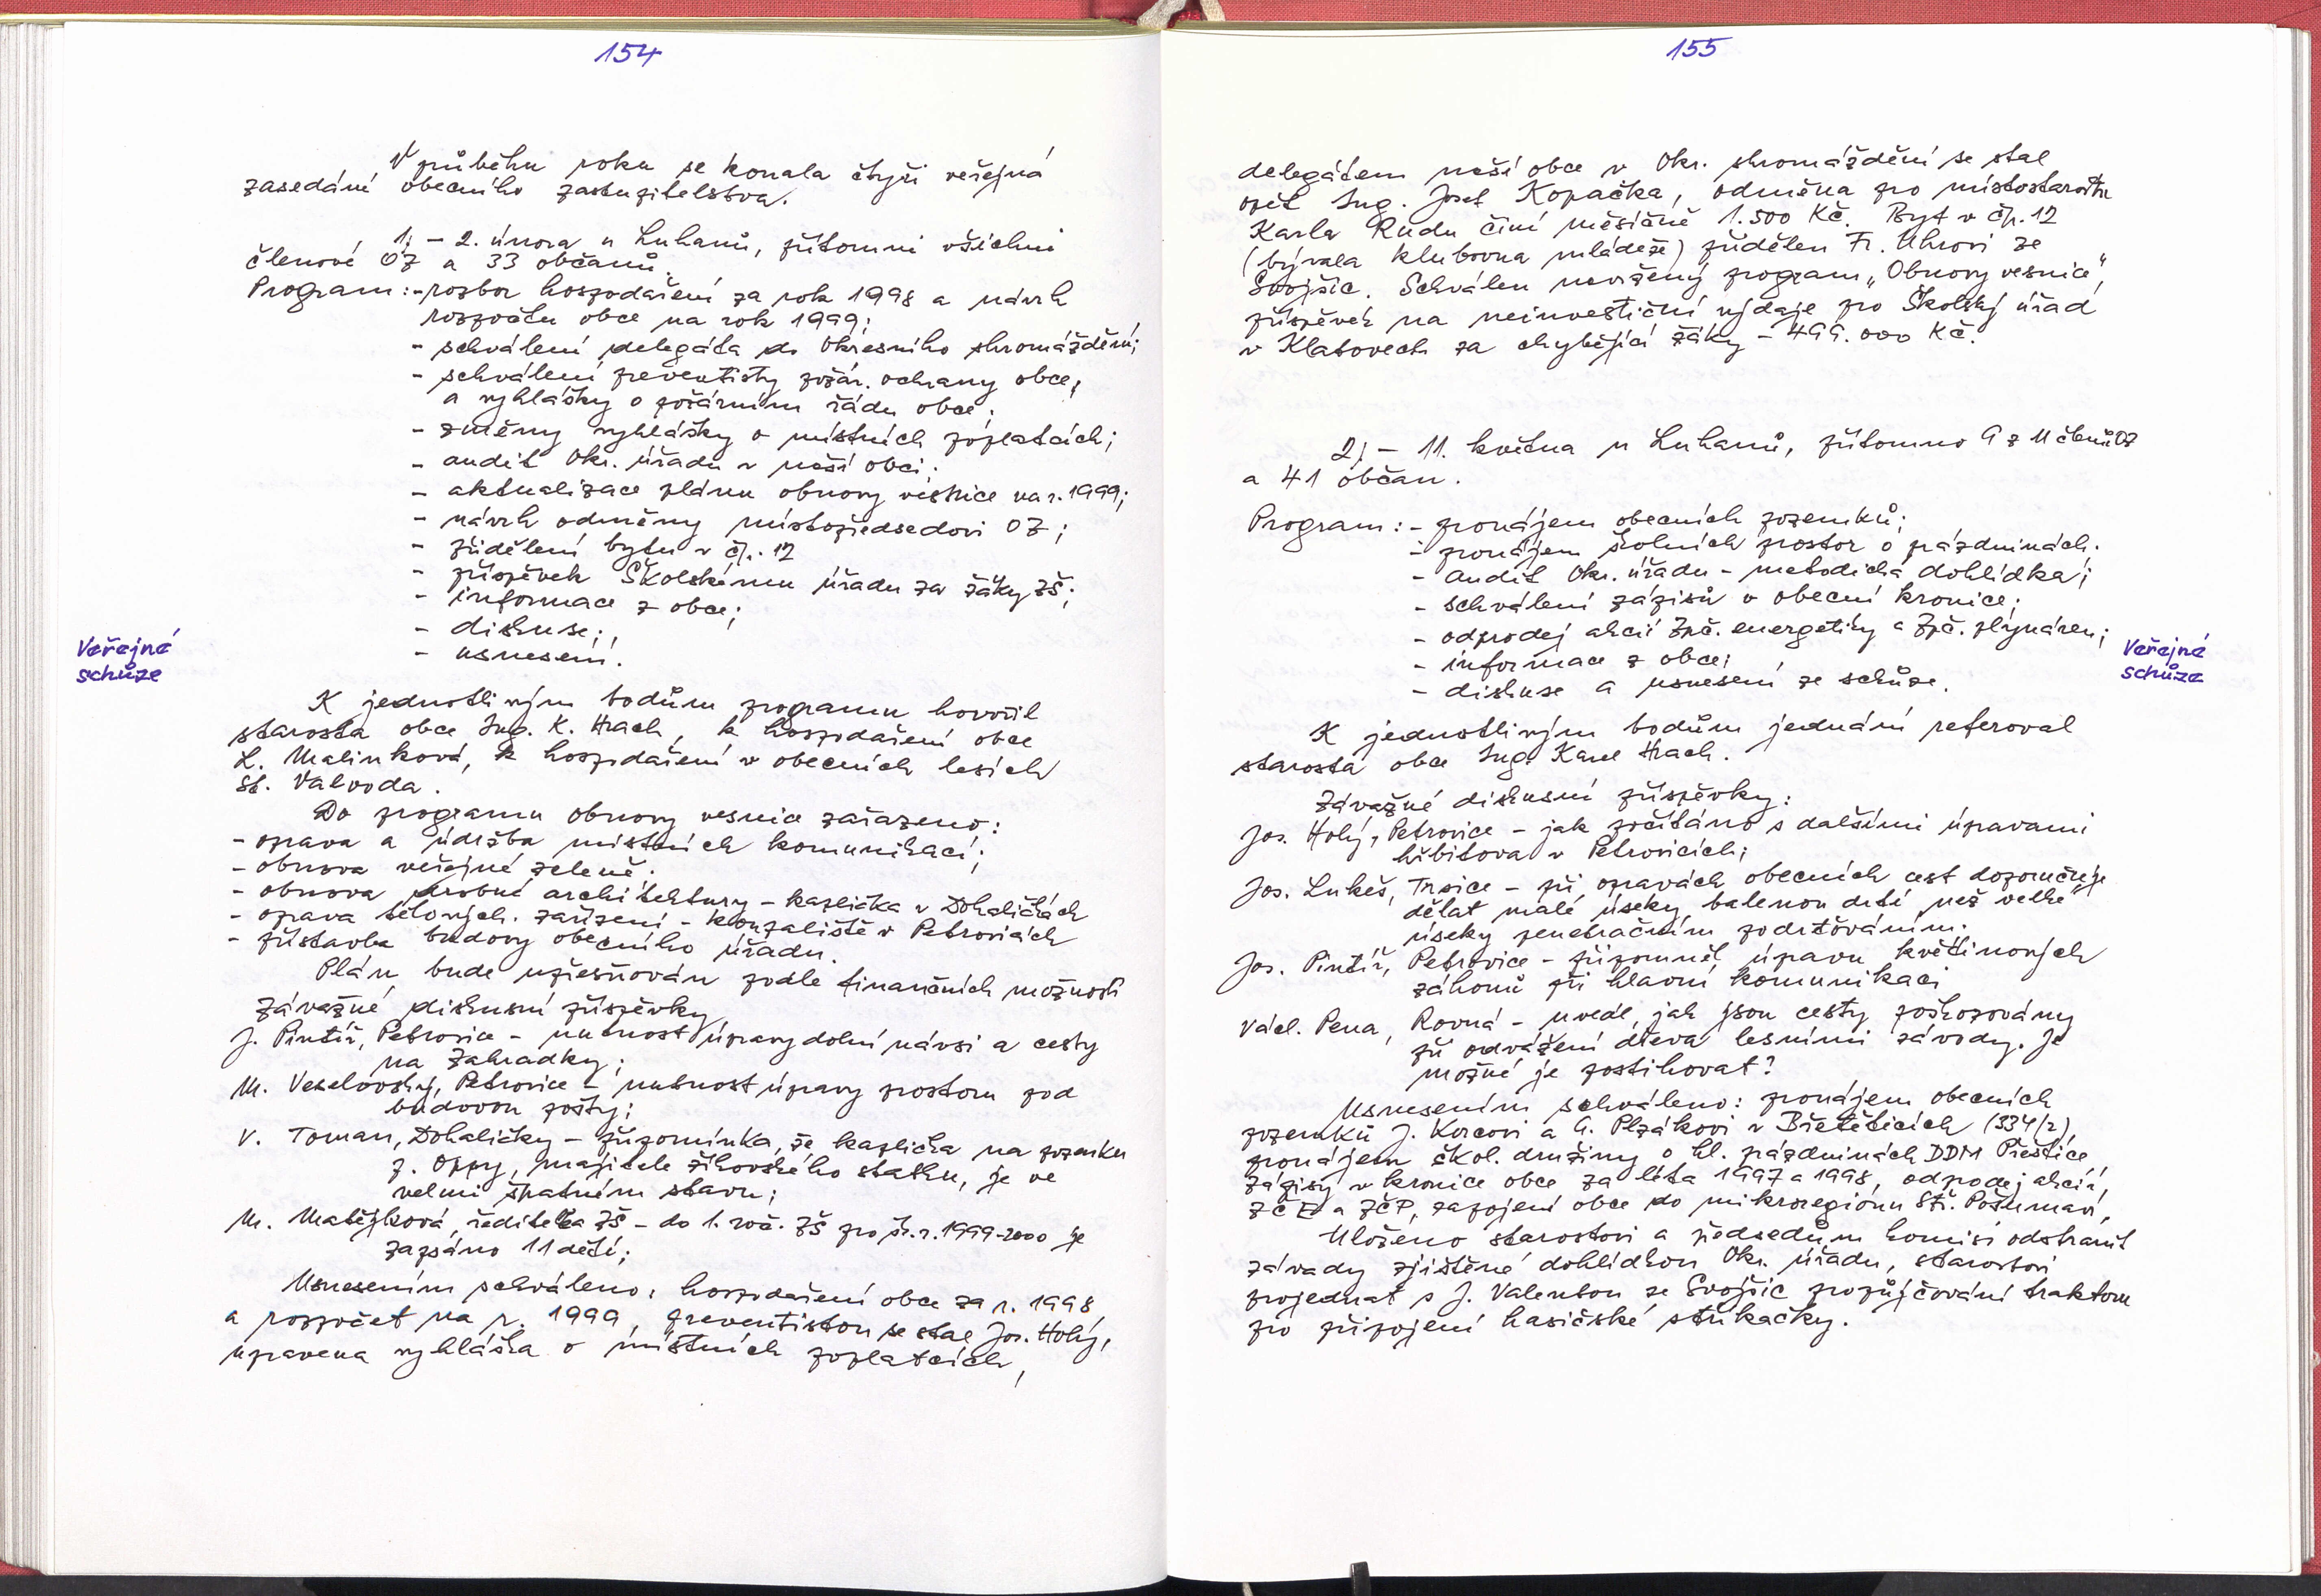 154
V průběhu roku se konala čtyři veřejná
zasedání obecního zastupitelstva.
1; – 2. února u Luhanů, přítomni všichni
členové OZ a 33 občanů.
Program: - rozbor hospodaření za rok 1998 a návrh
rozpočtu obce na rok 1999;
- schválení delegáta do Okresního shromáždění;
- schválení preventisty požár. ochrany obce,
a vyhlášky o požárním řádu obce;
- změny vyhlášky o místních poplatcích;
- audit Okr. úřadu v naší obci;
- aktualizace plánu obnovy vesnice na r. 1999;
- návrh odměny místopředsedovi OZ;
- přidělení bytu v čp. 12
- příspěvek Školskému úřadu za žáky ZŠ;
- informace z obce;
- diskuse;
- usnesení.
Veřejná
schůze
K jednotlivým bodům programu hovořil
starosta obce Ing. K. Hrach, k hospodaření obce
L. Malinková, k hospodaření v obecních lesích
St. Valvoda.
Do programu obnovy vesnice zařazeno:
- oprava a údržba místních komunikací;
- obnova veřejné zeleně;
- obnova drobné architektury - kaplička v Dohaličkách
- oprava tělových. zařízení - koupaliště v Petrovicích
- přístavba budovy obecního úřadu.
Plán bude upřesňován podle finančních možností
Závažné diskusní příspěvky
J. Pintíř, Petrovice - nutnost úpravy dolní návsi a cesty
na Zahradky;
M. Veselovský, Petrovice - nutnost úpravy prostoru pod
budovou pošty;
V. Toman, Dohaličky - připomínka, že kaplička na pozemku
p. Oppy, majitele žikovského statku, je ve
velmi špatném stavu;
M. Matějková, ředitelka ZŠ - do 1. roč. ZŠ pro šk. r. 1999-2000 je
zapsáno 11 dětí;
Usnesením schváleno: hospodaření obce za r. 1998
a rozpočet na r. 1999, preventistou se stal Jos. Holý,
upravena vyhláška o místních poplatcích,
155
delegátem naší obce v Okr. shromáždění se stal
opět Ing. Josef Kopačka, odměna pro místostarostu
Karla Rudu činí měsíčně 1.500 Kč. Byt v čp. 12
(bývala klubovna mládeže) přidělen Fr. Uhrovi ze
Svojšic. Schválen navržený program „Obnovy vesnice",
příspěvek na neinvestiční výdaje pro Školský úřad
v Klatovech za chybějící žáky - 499.000 Kč.
2; – 11. května u Luhanů, přítomno 9 z 11 členů OZ
a 41 občan.
Program: - pronájem obecních pozemků;
- pronájem školních prostor o prázdninách;
- audit Okr. úřadu - metodická dohlídka;
- schválení zápisů v obecní kronice;
- odprodej akcií Zpč. energetiky a Zpč. plynáren;
- informace z obce;
- diskuse a usnesení ze schůze.
Veřejná
schůze
K jednotlivým bodům jednání referoval
starosta obce Ing. Karel Hrach.
Závažné diskusní příspěvky:
Jos. Holý, Petrovice - jak počítáno s dalšími úpravami
hřbitova v Petrovicích;
Jos. Lukeš, Trsice - při opravách obecních cest doporučuje
dělat malé úseky balenou drtí než velké
úseky penetračním podrťováním;
Jos. Pintíř, Petrovice - připomněl úpravu květinových
záhonů při hlavní komunikaci
Václ. Pena, Rovná - uvedl, jak jsou cesty poškozovány
při odvážení dřeva lesními závody. Je
možné je postihovat?
Usnesením schváleno: pronájem obecních
pozemků J. Korcovi a A. Plzákovi v Břetěticích (334/2),
pronájem škol. družiny o hl. prázdninách DDM Přeštice
zápisy v kronice obce za léta 1997 a 1998, odprodej akcií
ZČE a ZČP, zapojení obce do mikroregionu Stř. Pošumaví,
Uloženo starostovi a předsedům komisí odstranit
závady zjištěné dohlídkou Okr. úřadu, starostovi
projednat s J. Valentou ze Svojšic propůjčování traktoru
pro připojení hasičské stříkačky.